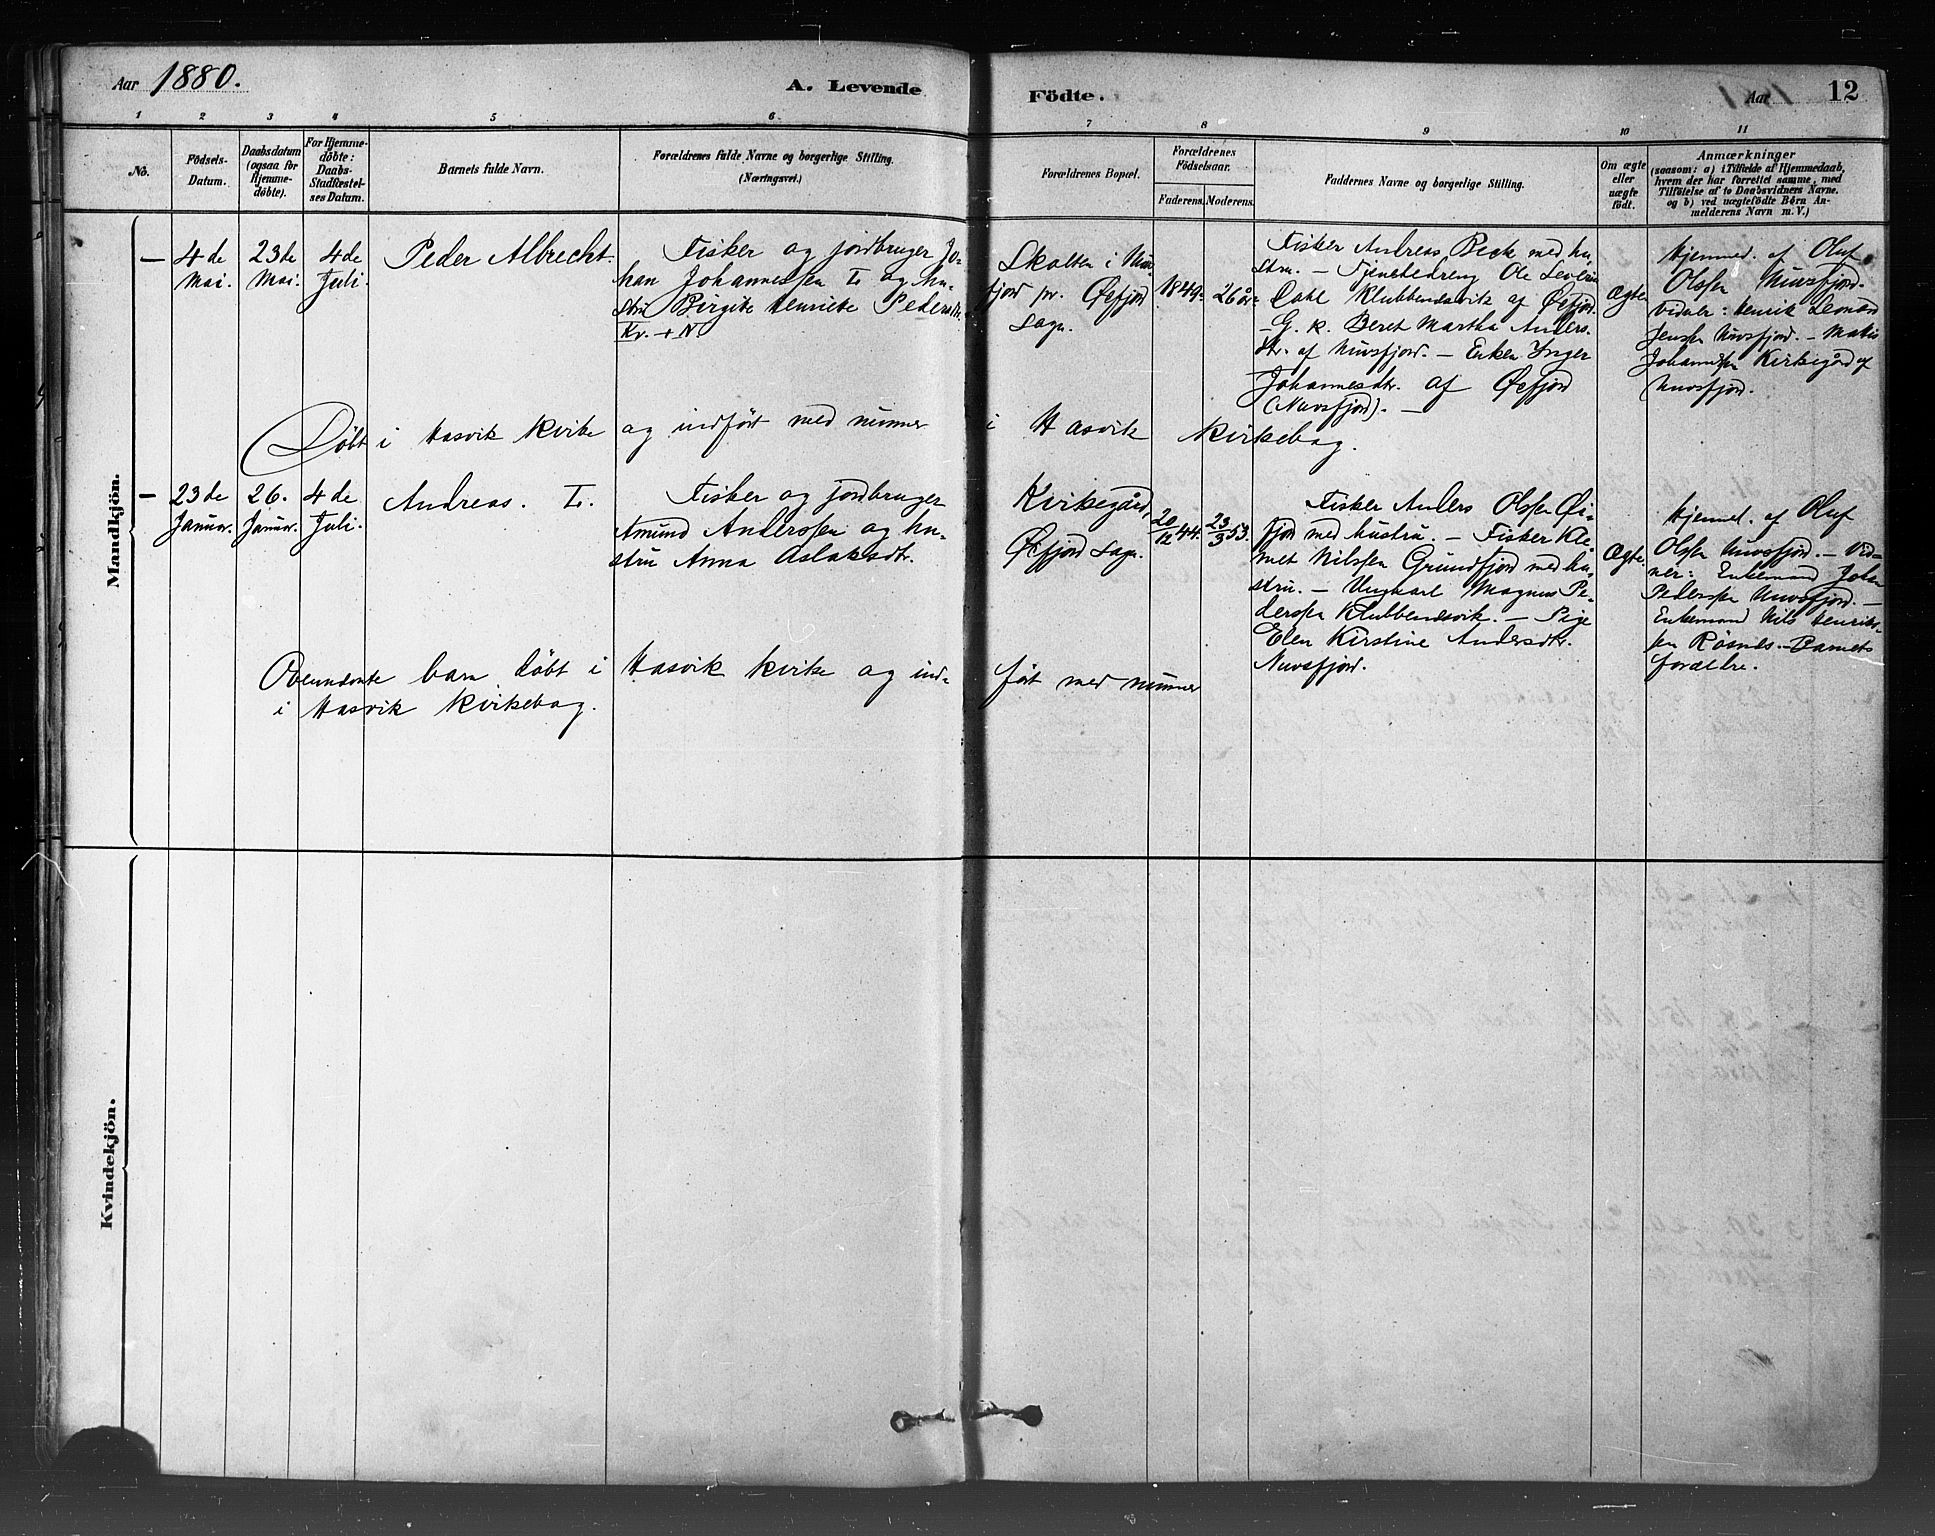 Aar 1880.
A. Levende
Födte.
Aar
12
1
2
3
4
5
6
7
8
9
10
11
No.
Födsels-
Datum.
Daabsdatum
(ogsaa for
Hjemme-
döbte).
For Hjemme-
döbte:
Daabs-
Stadfæstel-
ses Datum.
Barnets fulde Navn.
Forældrenes fulde Navne og borgerlige Stilling.
(Næringsvei.)
Forældrenes Bopæl.
Forældrenes
Födselsaar.
Faderens.
Moderens.
Faddernes Navne og borgerlige Stilling.
Om ægte
eller
uægte
födt.
Anmærkninger
(saasom: a) i Tilfælde af Hjemmedaab,
hvem der har forrettet samme, med
Tilföielse af to Daabsvidners Navne.
og b) ved uægtefödte Börn An-
melderens Navn m. V.)
Mandkjön.
—
4de
Mai.
23de
Mai.
4de
Juli.
Peder Albrecht.
Fisker og jordbruger Jo-
han Johannessen L. og hu-
stru Birgite Henriette Pedersdtr.
Kv. + N.
Skolten i Nuvs-
fjord pr. Øxfjord
sogn.
1849.
26 år.
Fisker Andreas Beck med hu-
stru. — Tjenestedreng Ole Severin
Dahl Klubbenæsvik af Øxfjord.
— G. k. Beret Martha Anders-
dtr. af Nuvsfjord. — Enken Inger
Johannesdtr. af Øxfjord
(Nuvsfjord). —
Ægte
Hjemmed. af Oluf
Olssen Nuvsfjord.
Vidner: Henrik Leonard
Jenssen Nuvsfjord. — Mathis
Johannessen Kirkegård af
Nuvsfjord.
Döbt i Hasvik kirke og indfört med nummer i Hasvik kirkebog.
—
23de
Januar.
26.
Januar.
4de
Juli.
Andreas. L.
Fisker og jordbruger
Amund Anderssen og hu-
stru Anna Aslaksdtr.
Kirkegård,
Øxfjord sogn.
20/12 44.
23/3 53.
Fisker Anders Olssen Øx-
fjord med hustru. — Fisker Kle-
met Nilssen Grundfjord med hu-
stru. — Ungkarl Magnus Pe-
derssen Klubbenæsvik. — Pige
Elen Kirstine Andersdtr.
Nuvsfjord.
Ægte.
Hjemmed. af Oluf
Olssen Nuvsfjord. — Vid-
ner: Enkemand Johan
Pederssen Nuvsfjord. —
Enkemand Nils Henriks-
sen Rösnes. — Barnets
forældre.
Ovennævnte barn döbt i Hasvik kirke og ind- fört med nummer
i Hasvik kirkebog.
Kvindekjön.